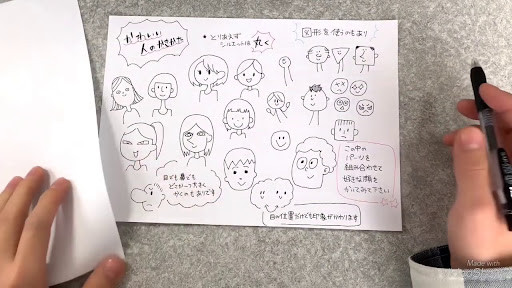 かわいい
人のかきかた
• とりあえず
シルエットは 丸く
図形を使うのもあり
目でも鼻でも
どこか一つ大きく
かくのもありです
この中の
パーツを
組み合わせて
好きな顔を
かいてみて下さい
目の位置だけでも印象がかわります
Made with